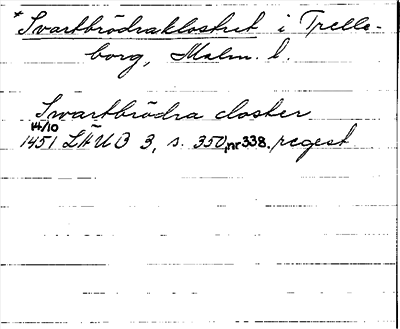 * Svartbrödraklostret i Trelle-
borg, Malm. l.
Swartbrödra closter
14/10
1451 LÄUB 3, s. 350, nr 338. regest